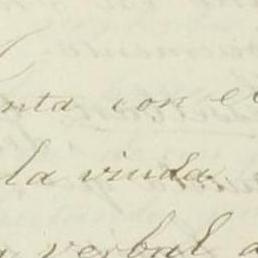 nta con e
la viuda
verbal a